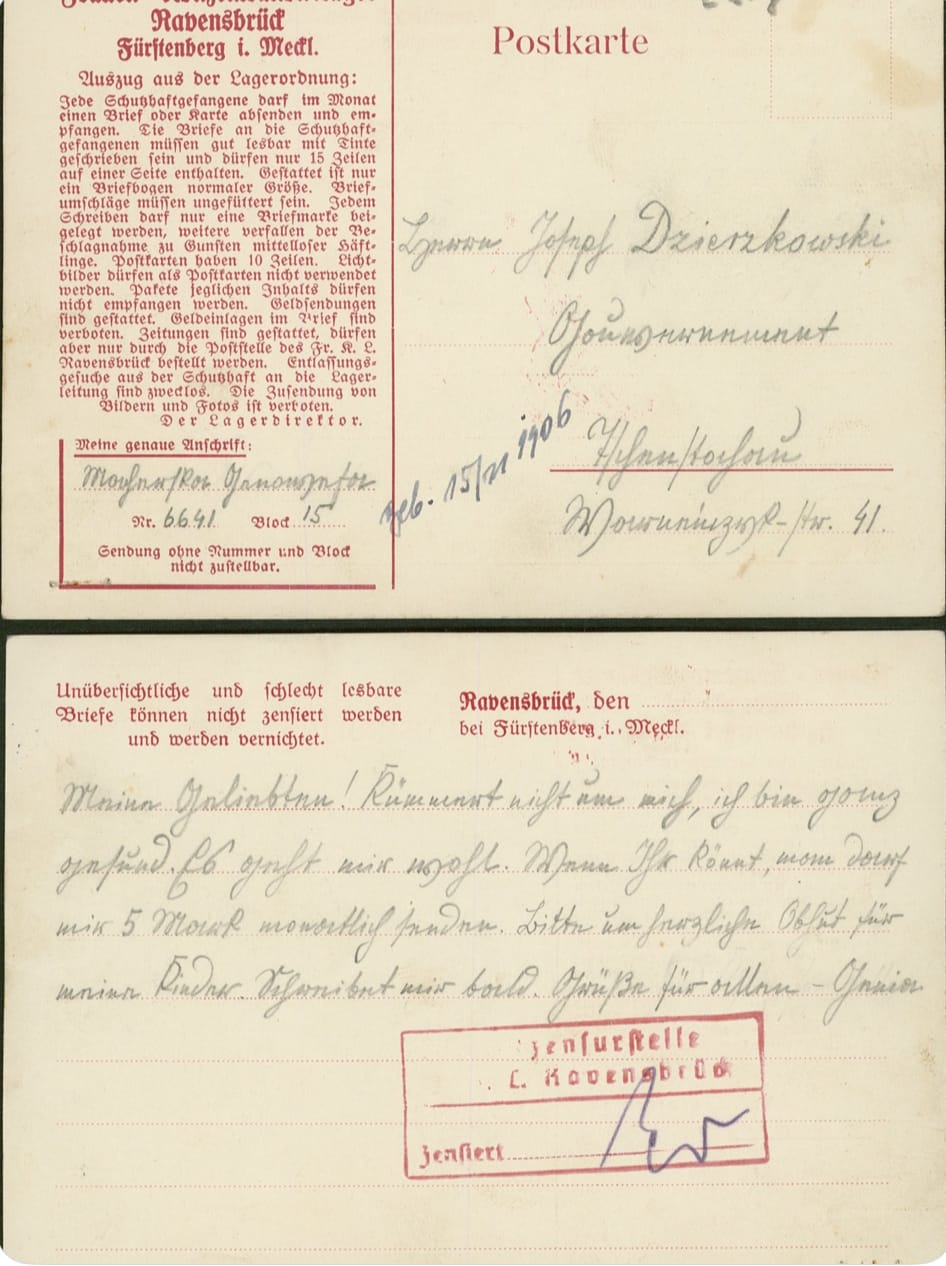 Ravensbrück
Fürstenberg i. Meckl.
Auszug aus der Lagerordnung:
Jede Schutzhaftgefangene darf im Monat
einen Brief oder Karte absenden und em-
pfangen. Die Briefe an die Schutzhaft-
gefangenen müssen gut lesbar mit Tinte
geschrieben sein und dürfen nur 15 Zeilen
auf einer Seite enthalten. Gestattet ist nur
ein Briefbogen normaler Größe. Brief-
umschläge müssen ungefüttert sein. Jedem
Schreiben darf nur eine Briefmarke bei-
gelegt werden, weitere verfallen der Be-
schlagnahme zu Gunsten mittelloser Häft-
linge. Postkarten haben 10 Zeilen. Licht-
bilder dürfen als Postkarten nicht verwendet
werden. Pakete jeglichen Inhalts dürfen
nicht empfangen werden. Geldsendungen
sind gestattet. Geldeinlagen im Brief sind
verboten. Zeitungen sind gestattet, dürfen
aber nur durch die Poststelle des Fr. K. L.
Ravensbrück bestellt werden. Entlassungs-
gesuche aus der Schutzhaft an die Lager-
leitung sind zwecklos. Die Zusendung von
Bildern und Fotos ist verboten.
Der Lagerdirektor.
Meine genaue Anschrift:
Macherska Genowefa
Nr. 6641 Block 15
Sendung ohne Nummer und Block
nicht zustellbar.
Postkarte
Herrn Joseph Dzierzkowski
Gouvernement
geb. 15/ 1906
Tschenstochau
-str. 41.
Unübersichtliche und schlecht lesbare
Briefe können nicht zensiert werden
und werden vernichtet.
Ravensbrück, den
bei Fürstenberg i. Meckl.
Meine Geliebten! Kümmert nicht um mich, ich bin ganz
gesund. Es geht mir wohl. Wenn Ihr könnt, man darf
mir 5 Mark monatlich senden. Bitte um herzliche Obhut für
meine Kinder. Schreibet mir bald. Grüße für allen – Genia
Zensurstelle
L. Ravensbrück
zensiert